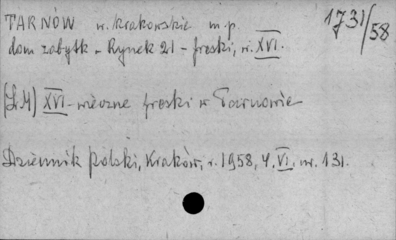 TARNÓW w. krakowskie m.p.
1731/58
dom zabytk. - Rynek 21 - freski, w. XVI.
(ŁM) XVI-wieczne freski w Tarnowie
Dziennik Polski, Kraków, r. 1958, 4. VI, nr. 131.